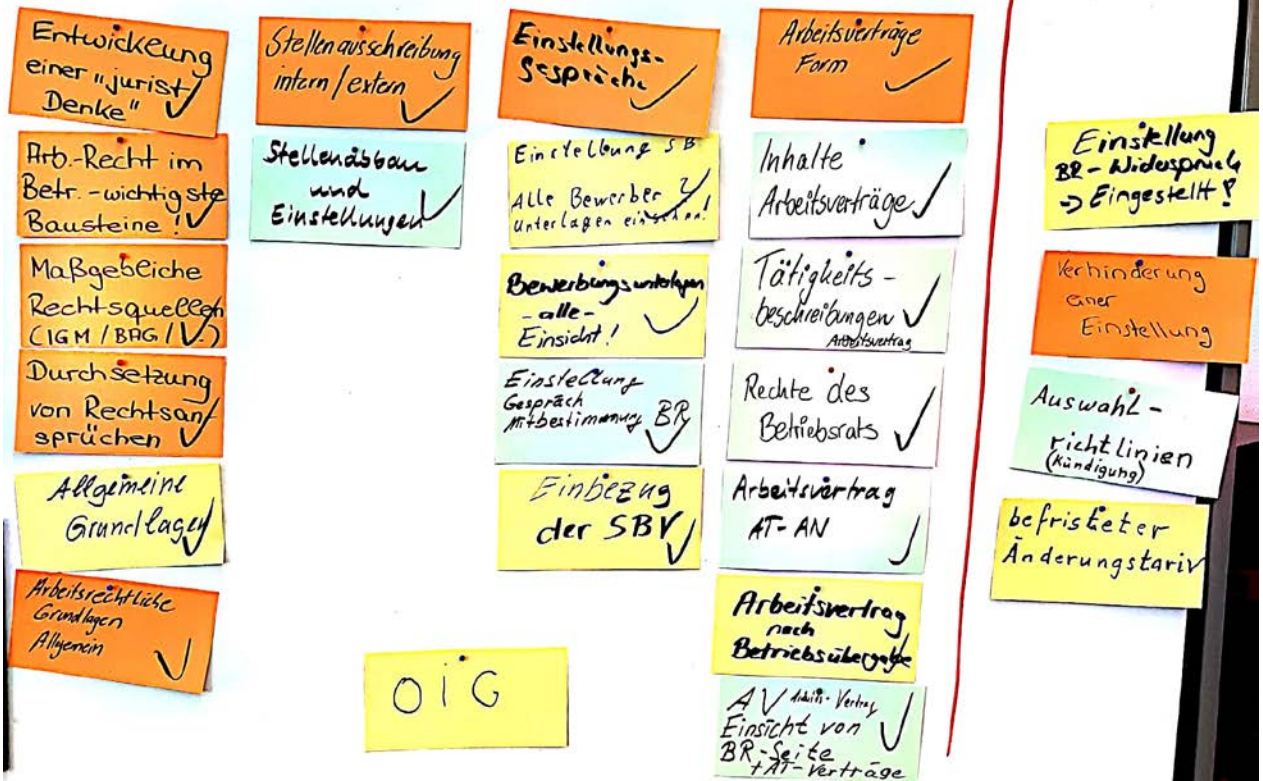 Entwicklung
einer "jurist.
Denke"
Arb.-Recht im
Betr.-wichtigste
Bausteine!
Maßgebliche
Rechtsquellen
(IGM / BAG / V.)
Durchsetzung
von Rechtsan
sprüchen
Allgemeine
Grundlagen
Arbeitsrechtliche
Grundlagen
Allgemein
Stellenausschreibung
intern / extern
Stellenabbau
und
Einstellungen
OiG
Einstellungs-
gespräche
Einstellung SB
Alle Bewerber
Unterlagen einsehen!
Bewerbungsunterlagen
- alle -
Einsicht!
Einstellung
Gespräch
Mitbestimmung BR
Einbezug
der SBV
Arbeitsverträge
Form
Inhalte
Arbeitsverträge
Tätigkeits-
beschreibungen
Arbeitsvertrag
Rechte des
Betriebsrats
Arbeitsvertrag
AT-AN
Arbeitsvertrag
nach
Betriebsübergabe
AV Arbeits-Vertrag
Einsicht von
BR-Seite
+AT-Verträge
Einstellung
BR-Widerspruch
-> Eingestellt?
Verhinderung
einer
Einstellung
Auswahl-
richtlinien
(Kündigung)
befristeter
Änderungstariv